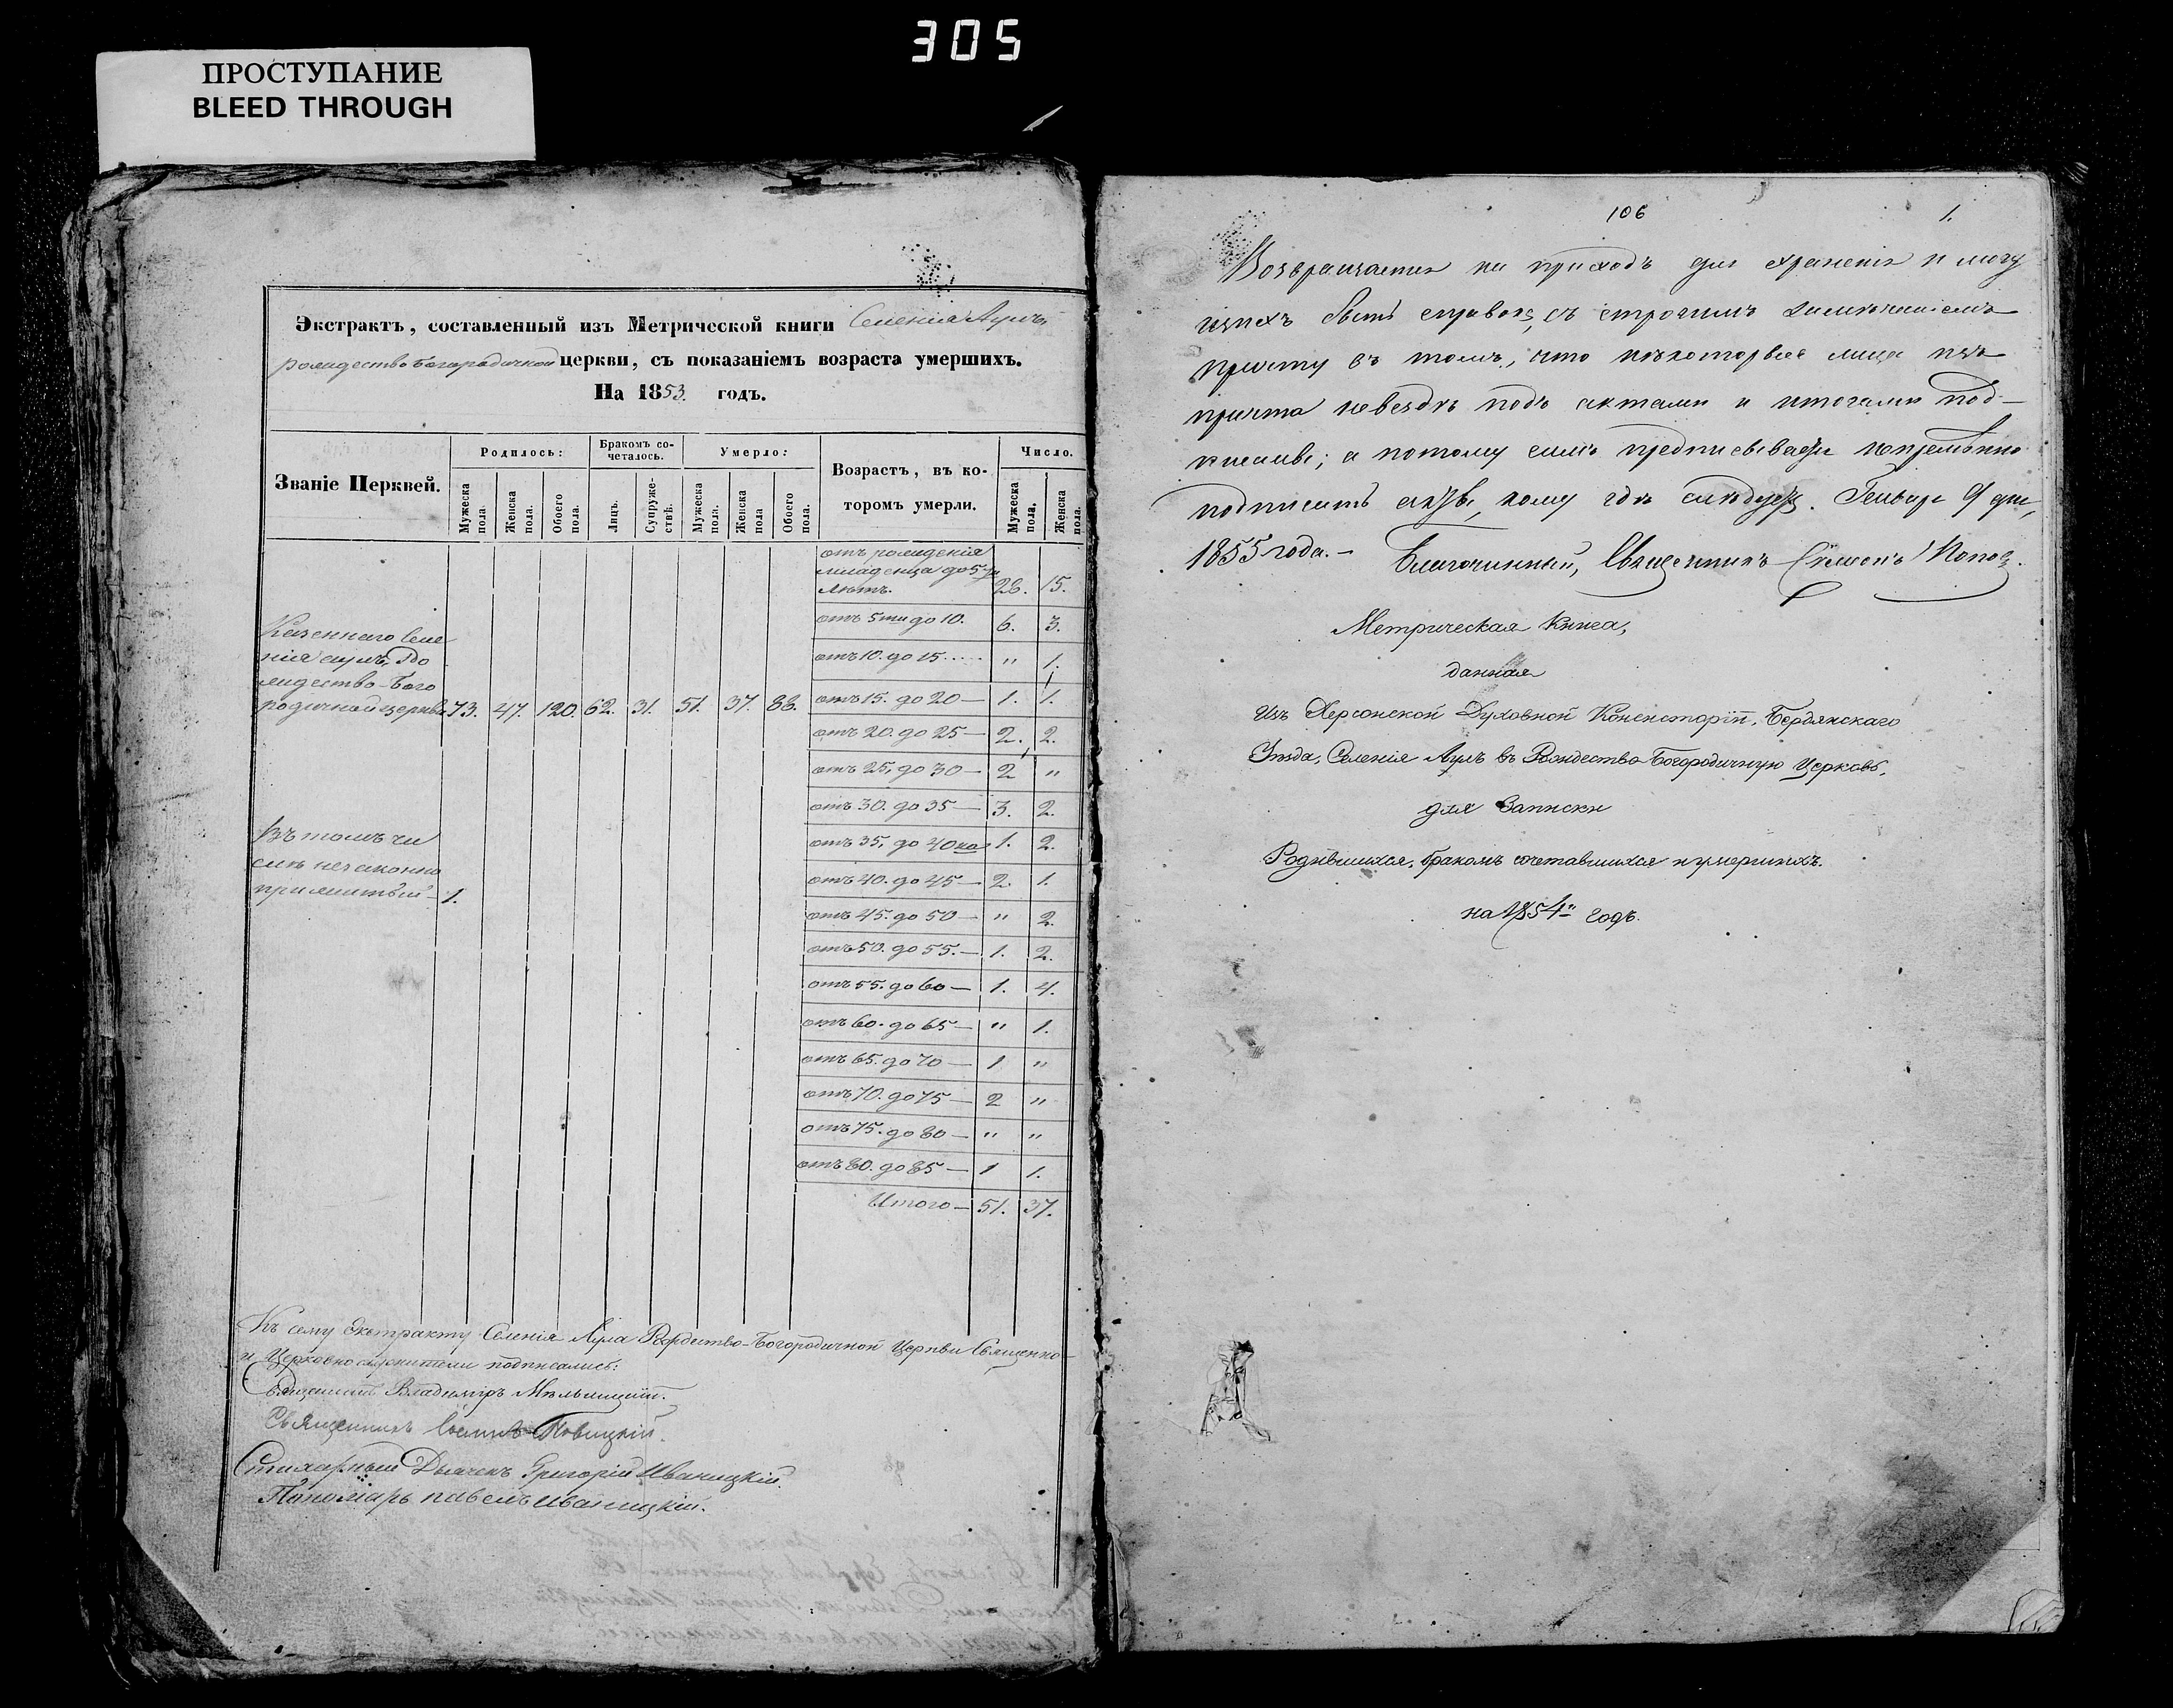 305
ПРОСТУПАНИЕ
BLEED THROUGH
Экстрактъ, составленный изъ Метрической книги Селенія Аулъ,
рождество богородичной церкви, съ показаніемъ возраста умершихъ.
На 1853. годъ.
Званіе Церквей.
Родилось:
Бракомъ со-
четалось.
Умерло:
Возрастъ, въ ко-
торомъ умерли.
Число.
Мужеска пола.
Женска пола.
Обоего пола.
Лицъ.
Супруже-
ствъ.
Мужеска пола.
Женска пола
Обоего пола.
Мужеска пола.
Женска пола.
отъ рожденія
младенца до 5ти
лѣтъ. 28. 15.
отъ 5ти до 10. 6. 3.
отъ 10. до 15 ..... " 1.
Казеннаго Селе
нія аулъ, Ро
ждество-Бого
родичной церкви 73. 47. 120. 62. 31. 51. 37. 88.
отъ 15. до 20 — 1. 1.
отъ 20. до 25 — 2. 2.
отъ 25. до 30 — 2 "
отъ 30. до 35 — 3. 2.
отъ 35. до 40ка 1. 2.
отъ 40. до 45 — 2. 1.
отъ 45. до 50 — " 2.
отъ 50. до 55. — 1. 2.
отъ 55. до 60 — 1. 4.
отъ 60. до 65 — " 1.
отъ 65. до 70 — 1 "
отъ 70. до 75 — 2 "
отъ 75. до 80 — " "
отъ 80. до 85 — 1 1.
Итого — 51. 37.
Въ томъ чи
слѣ незаконно
прижитый — 1.
Къ сему Экстракту Селенія Аула Рождество-Богородичной Церкви Священно-
и Церковнослужители подписались:
Священникъ Владиміръ
Священникъ Новицкій.
Стихарный Дьячекъ Григорій Иваницкій.
Пономарь павелъ иваницкій.
106 1.
Возвращается на приходъ для храненія и могу
щихъ быть справокъ, съ строгимъ замѣчаніемъ
причту въ томъ, что нѣкоторые лица изъ
причта невездѣ подъ актами и итогами под-
писаны; а потому симъ предписывается непремѣнно
подписать акты, кому гдѣ слѣдуетъ. Генваря 9 дня,
1855 года. — Благочинный, Священникъ Симеонъ Поповъ.
Метрическая Книга,
данная
Изъ Херсонской Духовной Консисторіи, Бердянскаго
Уѣзда, Селенія Аулъ въ Рождество Богородичную Церковь,
для Записки
Родившихся, бракомъ сочетавшихся и умершихъ.
на 1854й годъ.